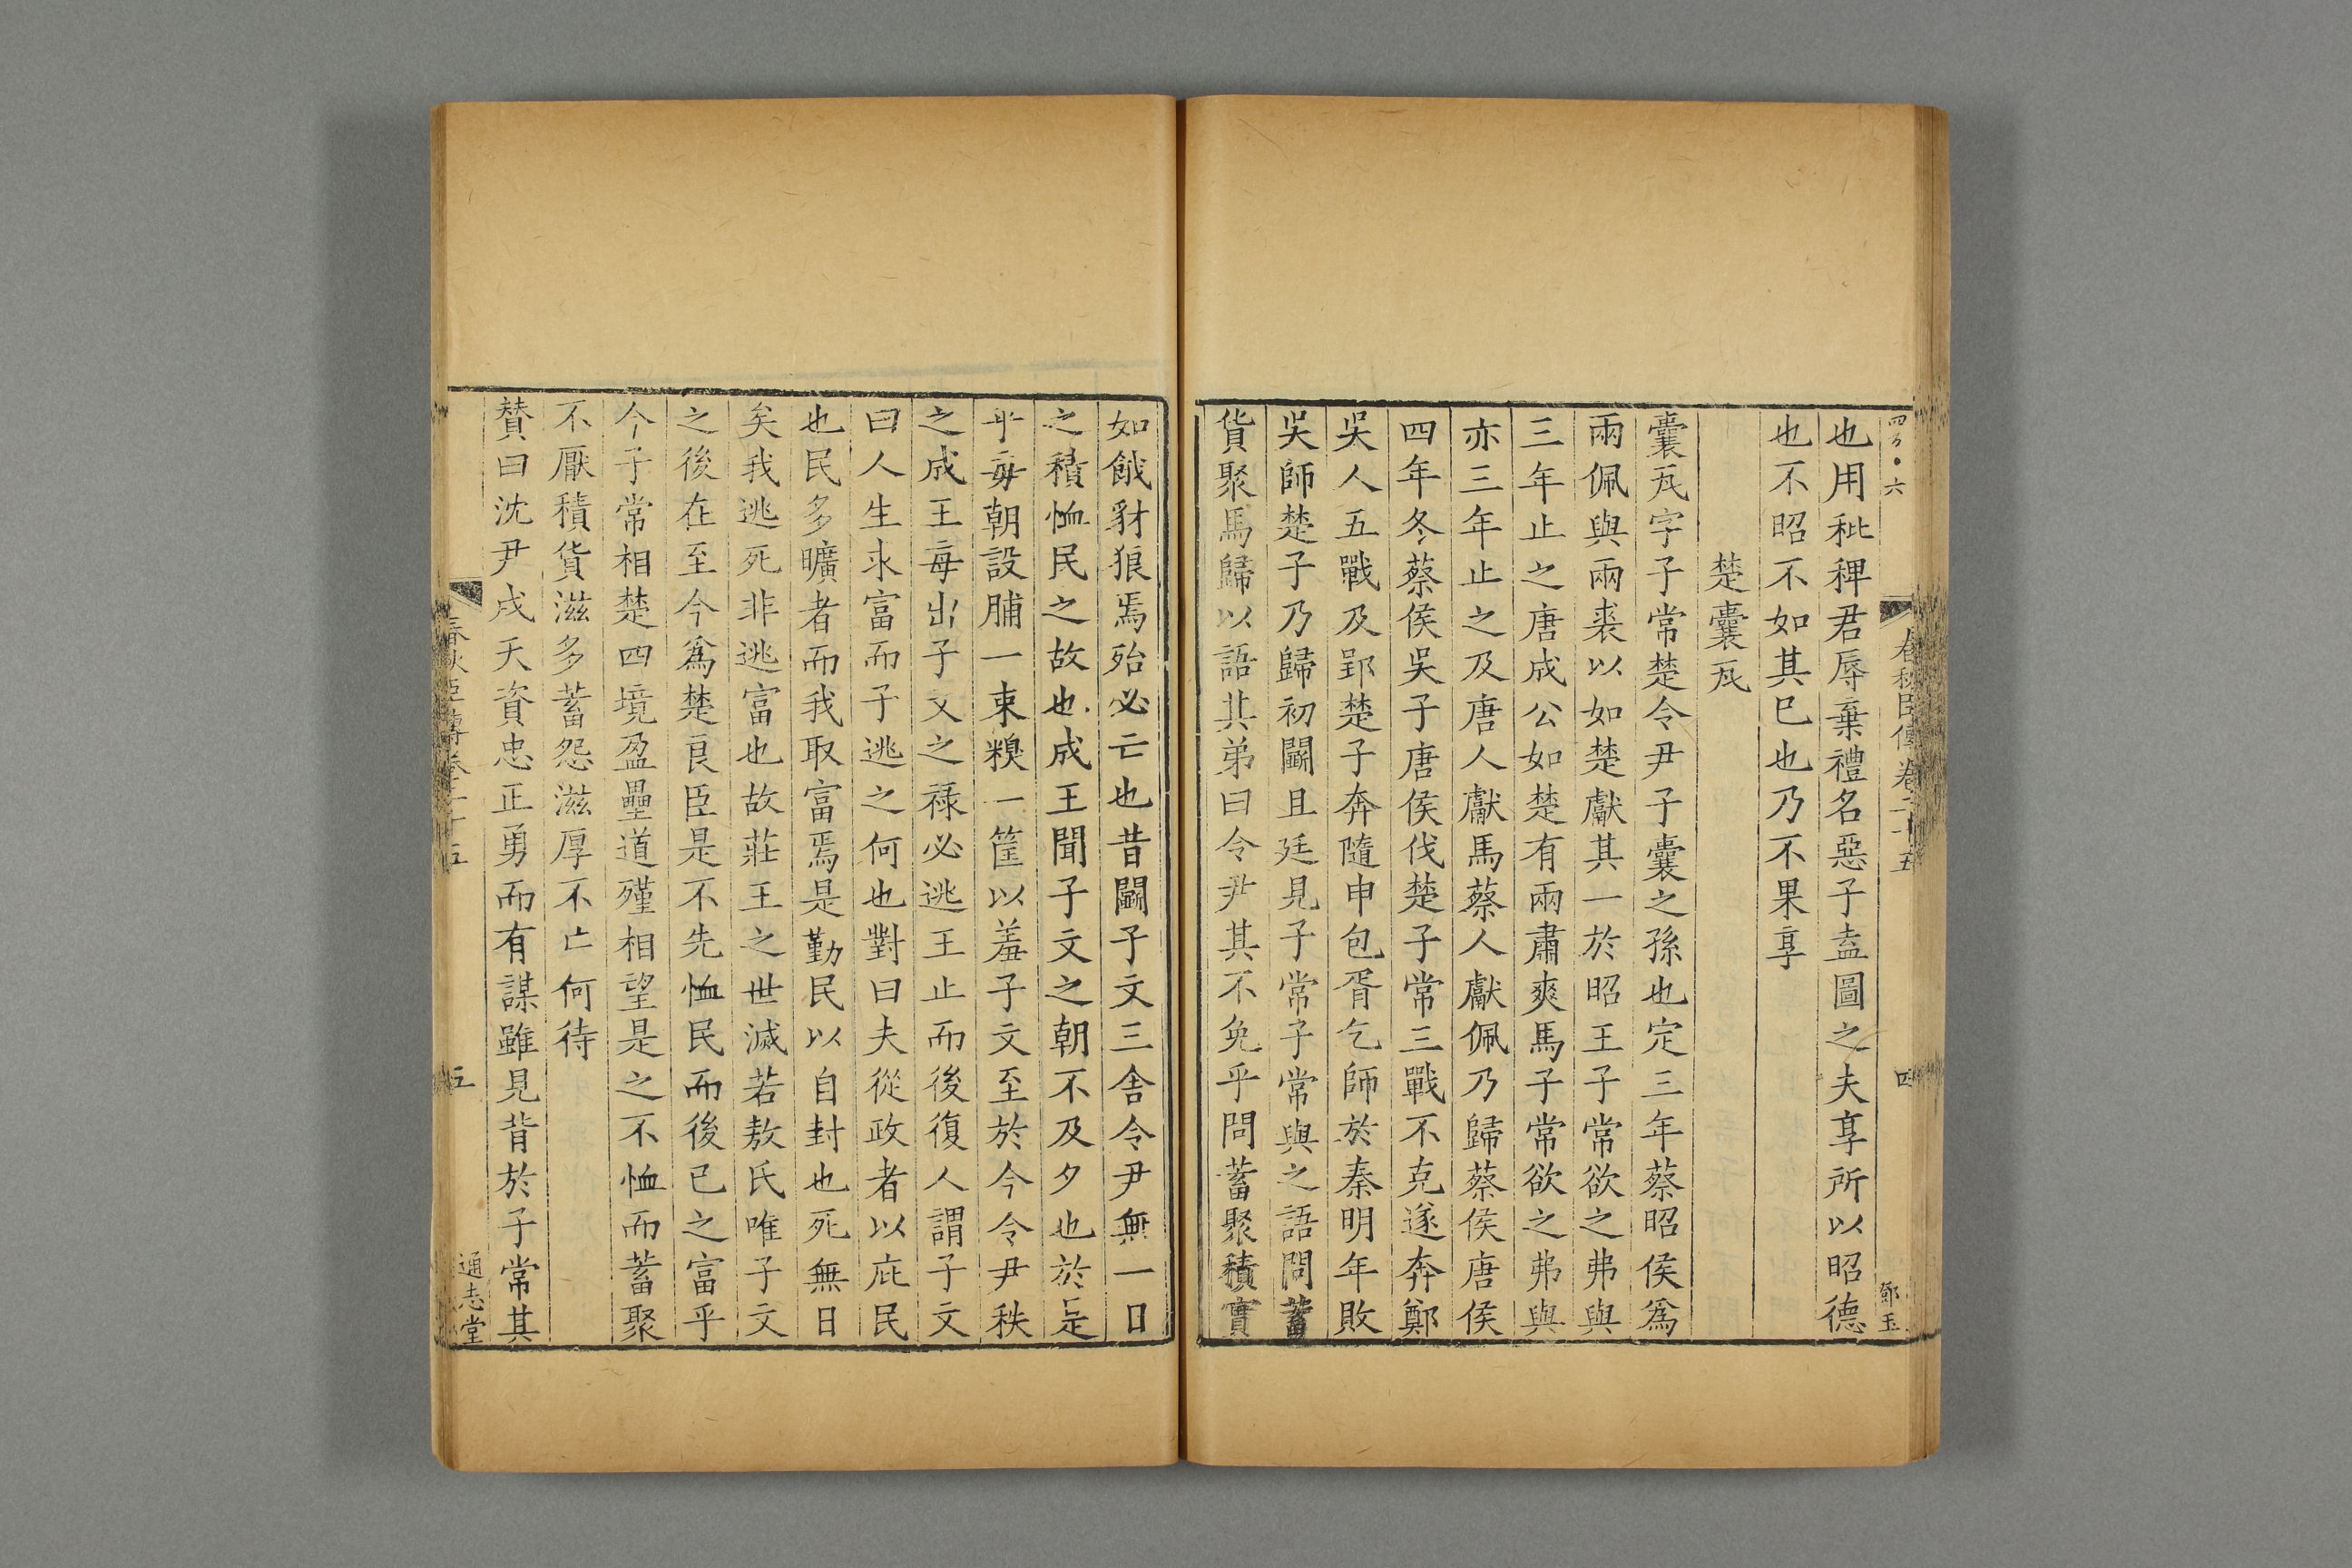 四百六
春秋臣傳卷二十五
四
鄧玉
也用秕稗君辱棄禮名惡子盍圖之夫享所以昭德
也不昭不如其已也乃不果享
楚囊瓦
囊瓦字子常楚令尹子囊之孫也定三年蔡昭侯爲
兩佩與兩裘以如楚獻其一於昭王子常欲之弗與
三年止之唐成公如楚有兩肅爽馬子常欲之弗與
亦三年止之及唐人獻馬蔡人獻佩乃歸蔡侯唐侯
四年冬蔡侯吳子唐侯伐楚子常三戰不克遂奔鄭
吳人五戰及郢楚子奔隨申包胥乞師於秦明年敗
吳師楚子乃歸初鬭且廷見子常子常與之語問蓄
貨聚馬歸以語其弟曰令尹其不免乎問蓄聚積實
如餓豺狼焉殆必亡也昔鬭子文三舍令尹無一日
之積恤民之故也成王聞子文之朝不及夕也於是
乎每朝設脯一束糗一筐以羞子文至於今令尹秩
之成王每出子文之禄必逃王止而後復人謂子文
曰人生求富而子逃之何也對曰夫從政者以庇民
也民多曠者而我取富焉是勤民以自封也死無日
矣我逃死非逃富也故莊王之世滅若敖氏唯子文
之後在至今爲楚良臣是不先恤民而後已之富乎
今子常相楚四境盈壘道殣相望是之不恤而蓄聚
不厭積貨滋多蓄怨滋厚不亡何待
賛曰沈尹戌天資忠正勇而有謀雖見背於子常其
春秋臣傳卷二十五
五
通志堂